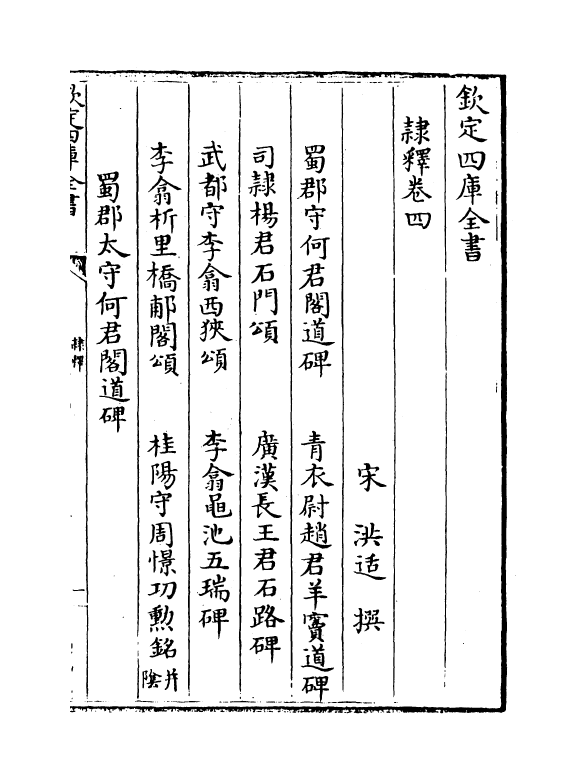 欽定四庫全書
隸釋卷四
宋 洪适 撰
蜀郡守何君閣道碑 青衣尉趙君羊竇道碑
司隸楊君石門頌 廣漢長王君石路碑
武都守李翕西狹頌 李翕黽池五瑞碑
李翕析里橋郙閣頌 桂陽守周憬功勲銘并陰
蜀郡太守何君閣道碑
欽定四庫全書
隸釋
一